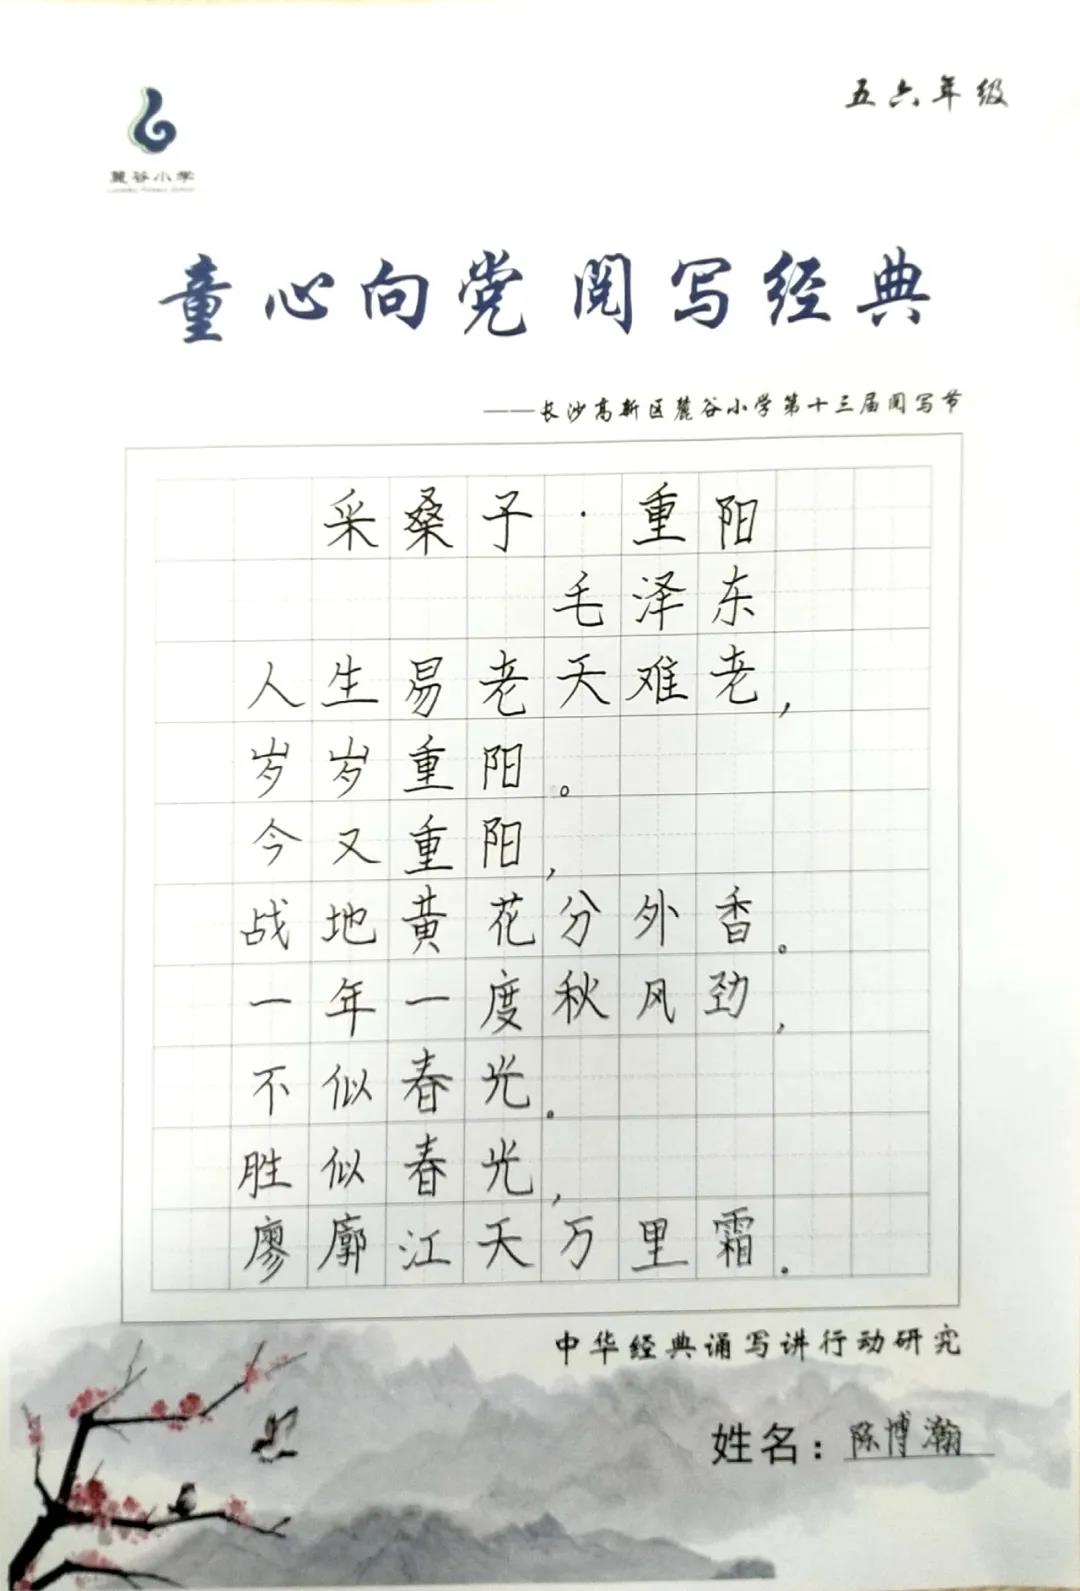 五六年级
麓谷小学
童心向党 阅写经典
——长沙高新区麓谷小学第十三届阅写节
采桑子·重阳
毛泽东
人生易老天难老，
岁岁重阳。
今又重阳，
战地黄花分外香。
一年一度秋风劲，
不似春光。
胜似春光，
廖廓江天万里霜。
中华经典诵写讲行动研究
姓名：陈博瀚